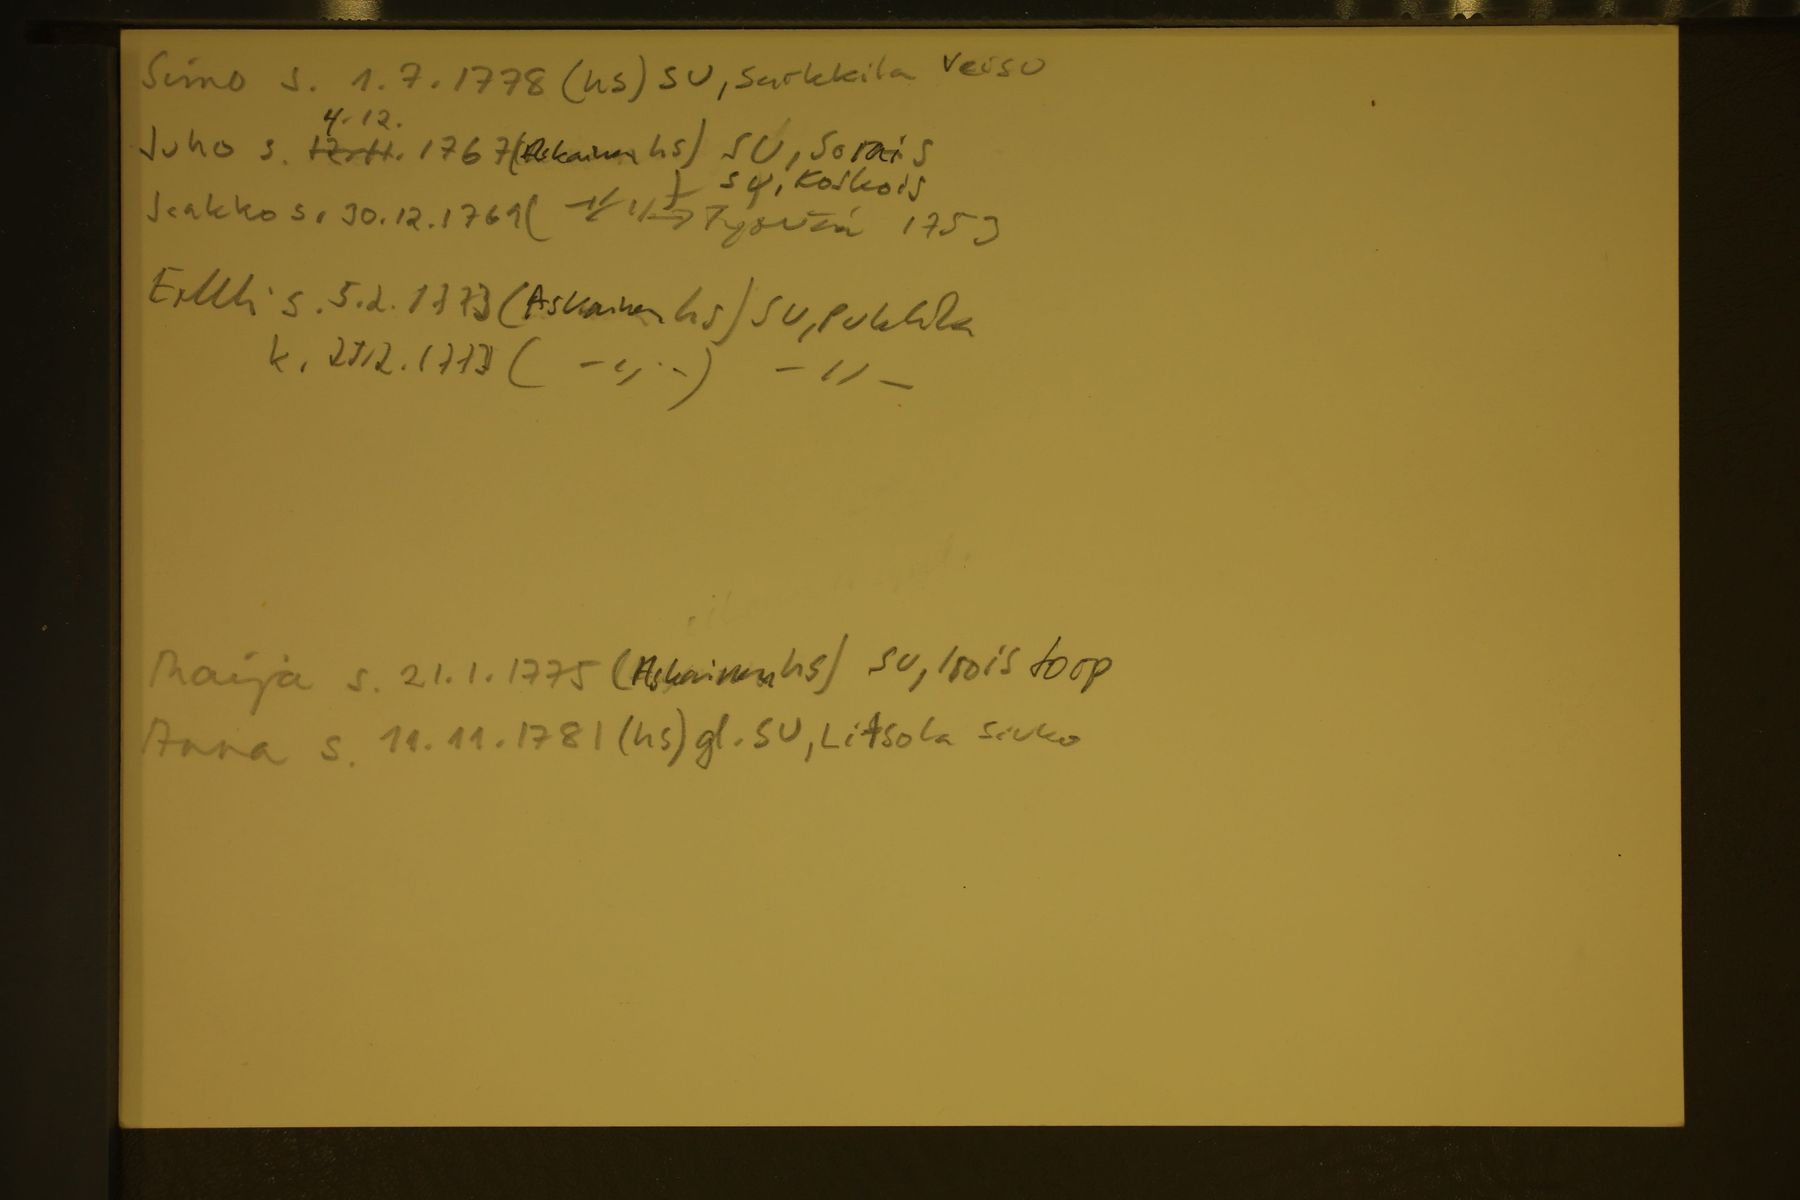 Simo s. 1.7.1778 (hs) SU, Sarkkila Veisu
4.12.
Juho s. 12.11. 1767 (Askainen hs) SU, Sorais
SU, Koskois
Jaakko s. 30.12.1769 ( —〃— ) → Tyrvää 1753
Erkki s. 5.2.1773 (Askainen hs) SU, Pukkila
k. 1773 ( —〃— ) —〃—
Maija s. 21.1.1775 (Askainen hs) SU, Isois torp
Anna s. 11.11.1781 (hs) gl. SU, Litsola